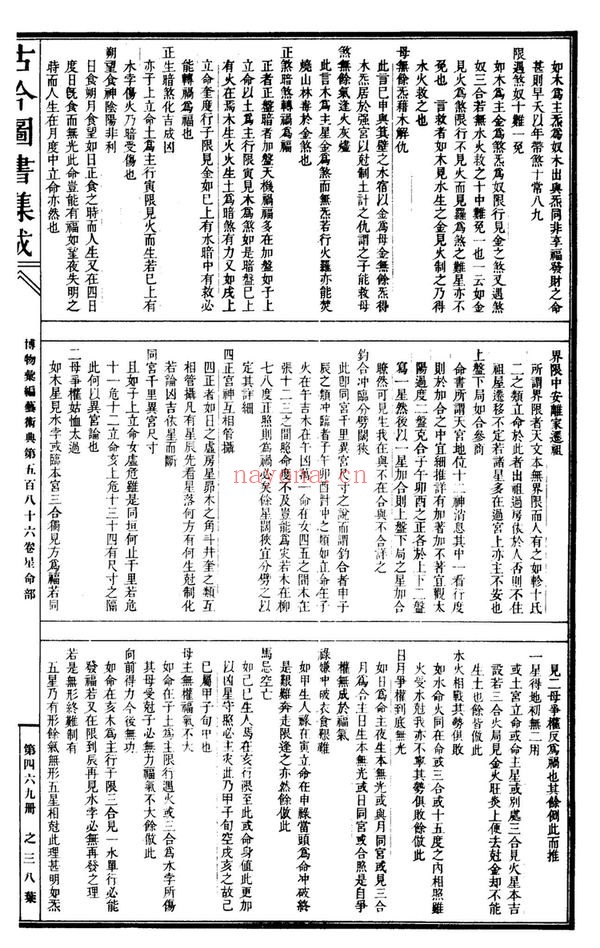 如木爲主炁爲奴木出與炁同非享福發財之命
甚則早夭以年帶煞十常八九
限遇煞奴十難一免
如木爲主金爲煞炁爲奴限行見金之煞又遇煞
奴三合若無水火救之十中難免一也一云如金
見火爲煞限行不見火而見羅爲煞之難星亦不
免也 言救者如木見水生之金見火制之乃得
水火救之也
母無餘炁藉木解仇
此言巳申與其壁之水宿以金爲母金無餘炁得
木炁居於强宮以尅制土計之仇謂之子能救母
煞無餘氣逢火灰燼
此言木爲主星金爲煞而無炁若行火羅亦能焚
燒山林毒於金煞也
正煞暗煞轉禍爲福
正者正盤暗者加盤天機禍福多在加盤如子上
立命以土爲主行限寅見木爲煞如是暗盤巳上
有火在焉木生火火生土爲暗煞有力又如戌上
立命奎度行子限見金如巳上有水暗中有救必
能轉禍爲福也
正生暗煞化吉成凶
亦子上立命土爲主行寅限見火而生若巳上有
木孛傷火乃暗受傷也
朔望食神陰陽非利
日食朔月食望如日正食之時而人生又在四日
度日旣食而無光此命豈能有福如望夜失明之
時而人生在月度中立命亦然也
界限中安離家遷祖
所謂界限者天文本無界限而人有之如軫十氐
二之類立命於此者出祖過房依於人否則不住
祖屋遷移不定若諸星多在過宮上亦主不安也
上盤下局如合參商
命書所謂天宮地位十二神消息其中一看行度
則於加合之中宜細推詳有加著加不著宜觀太
陽過度二盤克合子午卯酉之正各於上下二盤
寫一星然後以一星加合則上盤下局之星加合
瞭然可見生我在與不在合與不合詳之
鈞合冲臨分劈闊狹
此卽同宮千里異宮尺寸之說而謂鈞合者申子
辰之類冲臨者子午卯酉對冲之類如立命在子
火在午吉木在午凶立命在女四五之間木在
張十二三之間臨命度不及豈能爲災若木在柳
七八度正照則爲禍矣餘星闊狹宜分劈之以
定其詳細
四正宮神互相管攝
四正者如日之虛房星昴木之角斗井奎之類互
相管攝凡有星辰先看星落何方有何生尅制化
若論凶吉依星而斷
同宮千里異宮尺寸
且如子上立命女虛危雖是同垣何止千里若危
十一危十二立命亥上危十三十四有尺寸之隔
此何以異宮論也
二母爭權姑恤太過
如木星見水孛或臨本宮三合獨見方爲福若同
見二母爭權反爲禍也其餘倒此而推
一星得地初無二用
或土宮立命或命主星或別處三合見火星本吉
設若三合火局見金火旺炎上便去尅金却不能
生土也餘皆倣此
水火相戰其勢俱敗
如水命火同在命或三合或十五度之內相照雖
火受水尅我亦不寧其勢俱敗餘倣此
日月爭權到底無光
如日爲命主夜生本無光或與月同宮或見三合
月爲合主日生本無光或日同宮或合照是自爭
權無成於福氣
祿嫌中破衣食艱難
如甲生人祿在寅立命在申祿當頭爲命冲破終
是艱難奔走限逢之亦然餘倣此
馬忌空亡
如己巳生人馬在亥行限至此或命身値此更加
以凶星守照必主災此乃甲子旬空戌亥之故己
巳屬甲子旬中也
母主無權福氣不大
如命在子土爲主限行遇火或三合爲水孛所傷
其母受尅子必無力福氣不大餘倣此
向前得力今後無功
如命在亥木爲主行于限三合見一水單行必能
發福若又在限到辰再見水孛必無再發之理
若是無形終難制有
五星乃有形餘氣無形五星相尅此理甚明如炁
古今圖書集成
博物彙編藝術典第五百八十六卷星命部
第四六九册 之三八葉
nayona.cn